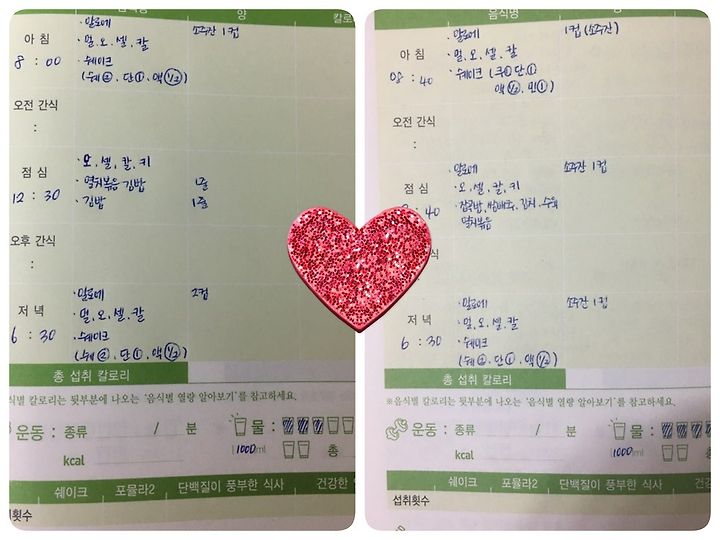 음식명 양 칼로리
아침
8 : 00
· 알로에 소주잔 1컵
· 멀, 오, 셀, 칼
· 쉐이크
(쉐②, 단①, 액(1/2))
오전 간식
:
점심
12 : 30
· 오, 셀, 칼, 키
· 멸치볶음 김밥 1줄
· 김밥 1줄
오후 간식
:
저녁
6 : 30
· 알로에 2컵
· 멀, 오, 셀, 칼
· 쉐이크
(쉐②, 단①, 액(1/2))
총 섭취 칼로리
식별 칼로리는 뒷부분에 나오는 '음식별 열량 알아보기'를 참고하세요.
운동 : 종류 / 분 물 :
kcal 1000 ml 총
쉐이크 포뮬라2 단백질이 풍부한 식사 건강한
횟수
음식명 양
아침
08 : 40
· 알로에 1컵 (소주잔)
· 멀, 오, 셀, 칼
· 쉐이크 (쿠① 단,①
액(1/2), 민①)
오전 간식
:
점심
: 40
· 알로에 소주잔 1컵
· 오, 셀, 칼, 키
· 잡곡밥, 쌈배추, 김치, 수육
멸치볶음
식
:
저녁
6 : 30
· 알로에 소주잔 1컵
· 멀, 오, 셀, 칼
· 쉐이크
(쉐②, 단①, 액(1/2))
총 섭취 칼로리
※음식별 칼로리는 뒷부분에 나오는 '음식별 열량 알아보기'를 참고하세요.
운동 : 종류 / 분 물 :
kcal 1000 ml 총
쉐이크 포뮬라2 단백질이 풍부한 식사 건강
섭취횟수